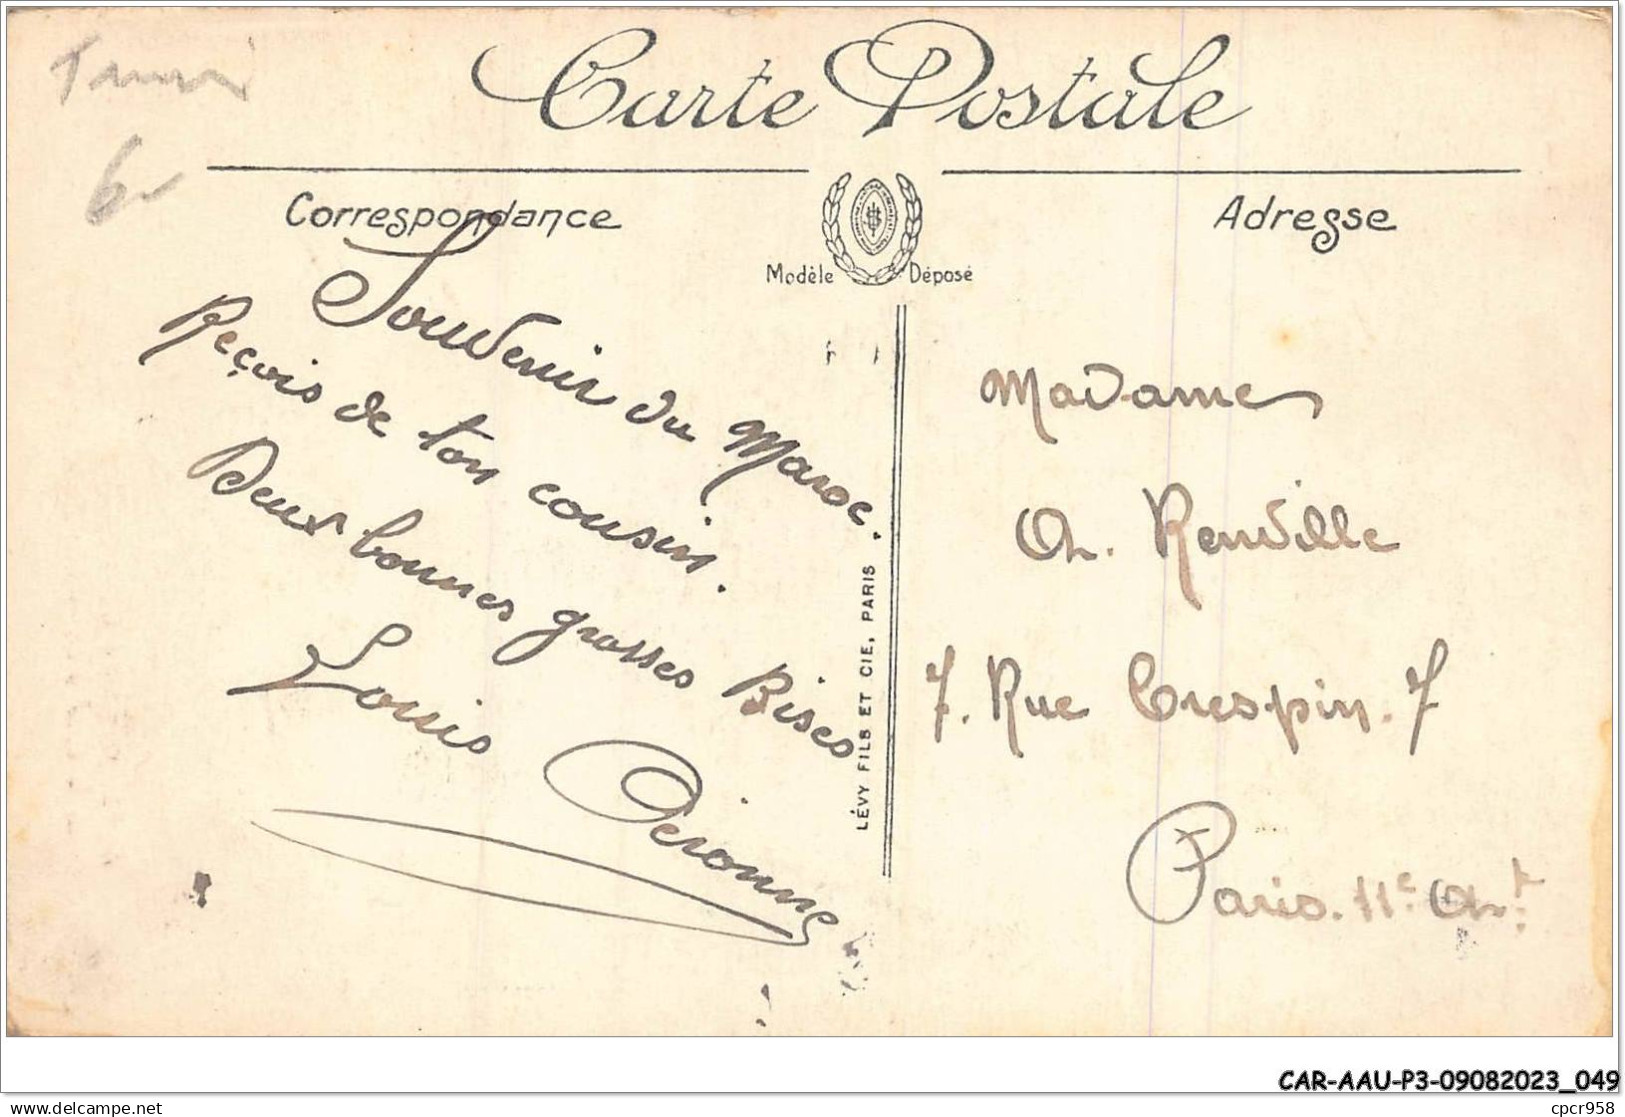 Carte Postale
Correspondance
Adresse
Modèle Déposé
Souvenir du Maroc.
Reçois de ton cousin.
Deux bonnes grosses Bises
Louis
LÉVY FILS ET CIE, PARIS
Madame
Ch. Renville
7. Rue Crespin. 7
Paris. 11e Art.
CAR-AAU-P3-09082023_049
delcampe.net
cpcr958